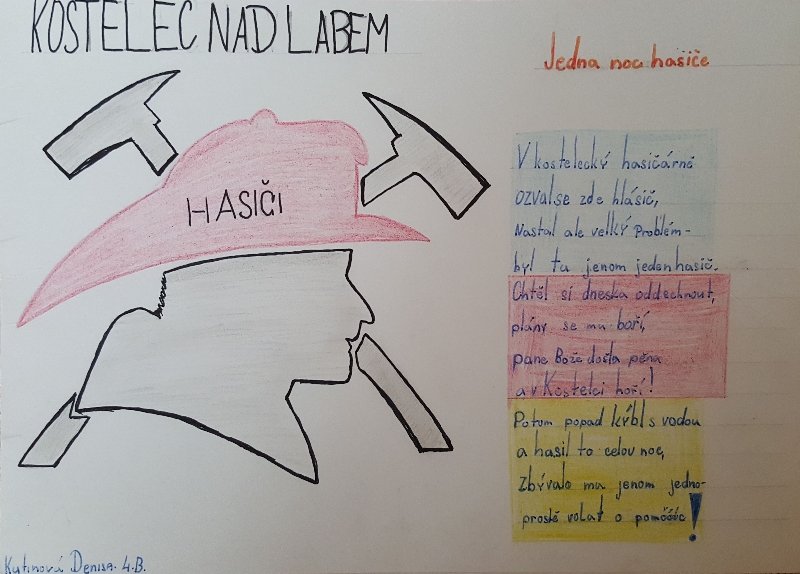 KOSTELEC NAD LABEM
HASIČI
Jedna noc hasiče
V kostelecký hasičárně
ozval se zde hlásič,
Nastal ale velký Problém-
byl tu jenom jeden hasič.
Chtěl si dneska oddechnout,
plány se mu boří,
pane Bože došla pěna
a v Kostelci hoří!
Potom popad kýbl s vodou
a hasil to celou noc,
Zbývalo mu jenom jedno-
prostě volat o pomóóóc!
Kutinová Denisa. 4.B.